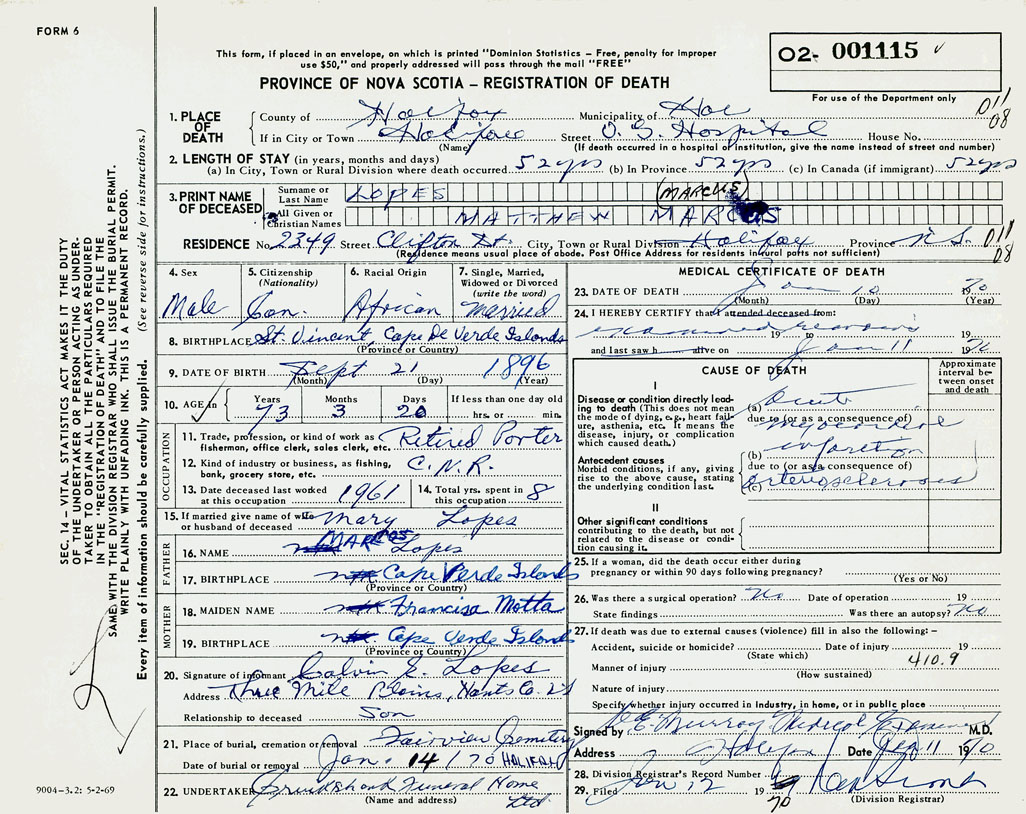 FORM 6
This form, if placed in an envelope, on which is printed "Dominion Statistics – Free, penalty for improper
use $50," and properly addressed will pass through the mail "FREE"
02- 001115
PROVINCE OF NOVA SCOTIA – REGISTRATION OF DEATH
For use of the Department only
D11
08
1. PLACE OF DEATH
County of Halifax Municipality of Hfx
If in City or Town Halifax Street V. G. Hospital House No.
(Name) (If death occurred in a hospital or institution, give the name instead of street and number)
2. LENGTH OF STAY (in years, months and days)
(a) In City, Town or Rural Division where death occurred 52 yrs (b) In Province 52 yrs (c) In Canada (if immigrant) 52 yrs
3. PRINT NAME OF DECEASED
Surname or Last Name LOPES (MARCUS)
All Given or Christian Names MATTHEW MARCUS
RESIDENCE No. 2349 Street Clifton St. City, Town or Rural Division Halifax Province N.S. D11
08
(Residence means usual place of abode. Post Office Address for residents in rural parts not sufficient)
4. Sex
Male
5. Citizenship
(Nationality)
Can.
6. Racial Origin
African
7. Single, Married,
Widowed or Divorced
(write the word)
Married
8. BIRTHPLACE St. Vincent, Cape De Verde Islands
(Province or Country)
9. DATE OF BIRTH Sept 21 1896
(Month) (Day) (Year)
10. AGE in
Years Months Days If less than one day old
73 3 20 hrs. or min.
OCCUPATION
11. Trade, profession, or kind of work as
fisherman, office clerk, sales clerk, etc. Retired Porter
12. Kind of industry or business, as fishing,
bank, grocery store, etc. C.N.R.
13. Date deceased last worked
at this occupation 1961
14. Total yrs. spent in
this occupation 8
15. If married give name of wife
or husband of deceased Mary Lopes
FATHER
16. NAME MARCOS Lopes
17. BIRTHPLACE Cape Verde Islands
(Province or Country)
MOTHER
18. MAIDEN NAME Francisa Motta
19. BIRTHPLACE Cape Verde Islands
(Province or Country)
20. Signature of informant Calvin E. Lopes
Address Three Mile Plains, Hants Co.
Relationship to deceased Son
21. Place of burial, cremation or removal Fairview Cemetery
Date of burial or removal Jan. 14/70 HALIFAX
22. UNDERTAKER Cruikshank Funeral Home
Ltd.
(Name and address)
MEDICAL CERTIFICATE OF DEATH
23. DATE OF DEATH Jan 10 1970
(Month) (Day) (Year)
24. I HEREBY CERTIFY that I attended deceased from:
examined remains 19 to 19
and last saw h alive on Jan 11 1970
CAUSE OF DEATH
Approximate
interval be-
tween onset
and death
I
Disease or condition directly lead-
ing to death (This does not mean
the mode of dying, e.g., heart fail-
ure, asthenia, etc. It means the
disease, injury, or complication
which caused death.)
(a) Acute
due to (or as a consequence of)
myocardial
Antecedent causes
Morbid conditions, if any, giving
rise to the above cause, stating
the underlying condition last.
(b) infarction
due to (or as a consequence of)
(c) arteriosclerosis
II
Other significant conditions
contributing to the death, but not
related to the disease or condi-
tion causing it.
25. If a woman, did the death occur either during
pregnancy or within 90 days following pregnancy?
(Yes or No)
26. Was there a surgical operation? No Date of operation 19
State findings Was there an autopsy? No
27. If death was due to external causes (violence) fill in also the following: –
Accident, suicide or homicide? Date of injury 19
(State which)
410.9
Manner of injury
(How sustained)
Nature of injury
Specify whether injury occurred in Industry, in home, or in public place
Signed by E. Murray Medical Examiner M.D.
Address Halifax Date Jan 11 1970
28. Division Registrar's Record Number
29. Filed Jan 12 19 70
(Division Registrar)
SEC. 14 – VITAL STATISTICS ACT MAKES IT THE DUTY
OF THE UNDERTAKER OR PERSON ACTING AS UNDER-
TAKER TO OBTAIN ALL THE PARTICULARS REQUIRED
IN THE "REGISTRATION OF DEATH" AND TO FILE THE
SAME WITH THE DIVISION REGISTRAR WHO SHALL ISSUE THE BURIAL PERMIT.
WRITE PLAINLY WITH UNFADING INK. THIS IS A PERMANENT RECORD.
Every item of information should be carefully supplied. (See reverse side for instructions.)
9004-3.2: 5-2-69